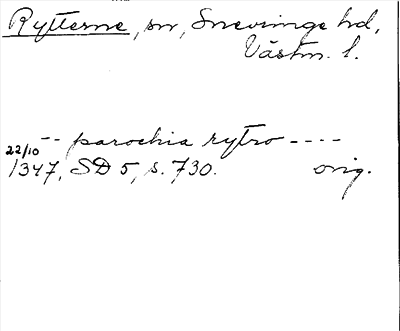 Rytterne, sn, Snevringe hd,
Västm. l.
-- parochia rytro ----
22/10
1347, SD 5, s. 730. orig.